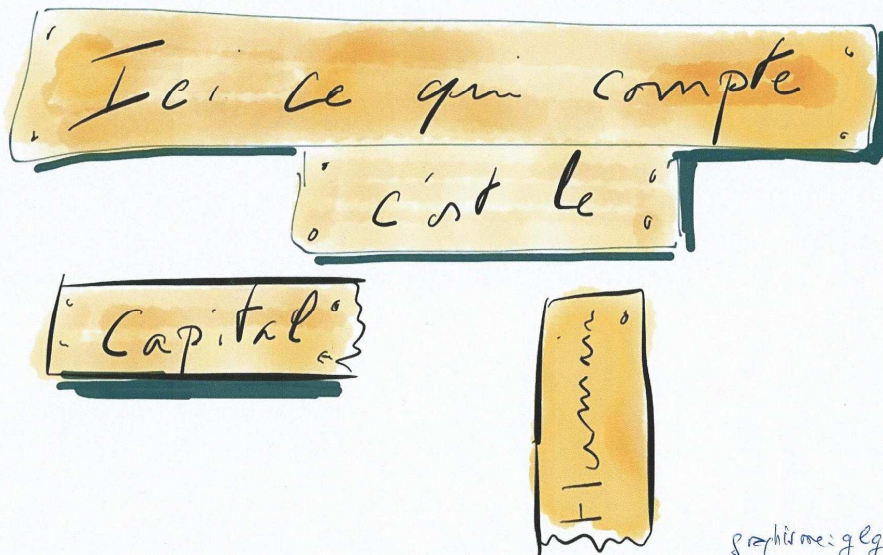 Ici ce qui compte
c'est le
Capital
Humain
graphisme: glg